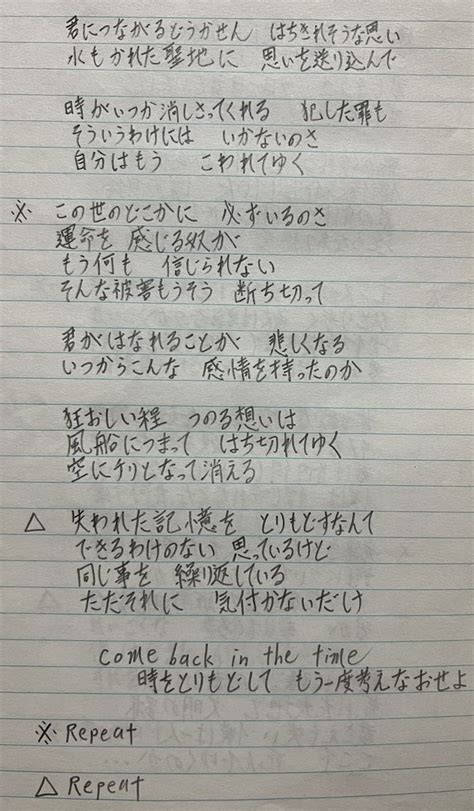 君につながるどうかせん　はちきれそうな思い
水もかれた聖地に　思いを送り込んで
時がいつか消しさってくれる　犯した罪も
そういうわけには　いかないのさ
自分はもう　こわれてゆく
※ この世のどこかに　必ずいるのさ
運命を　感じる奴が
もう何も　信じられない
そんな被害もうそう　断ち切って
君がはなれることが　悲しくなる
いつからこんな　感情を持ったのか
狂おしい程　つのる想いは
風船につまって　はち切れてゆく
空にチリとなって消える
△ 失われた記憶を　とりもどすなんて
できるわけのない　思っているけど
同じ事を　繰り返している
ただそれに　気付かないだけ
come back in the time
時をとりもどして　もう一度考えなおせよ
※ Repeat
△ Repeat